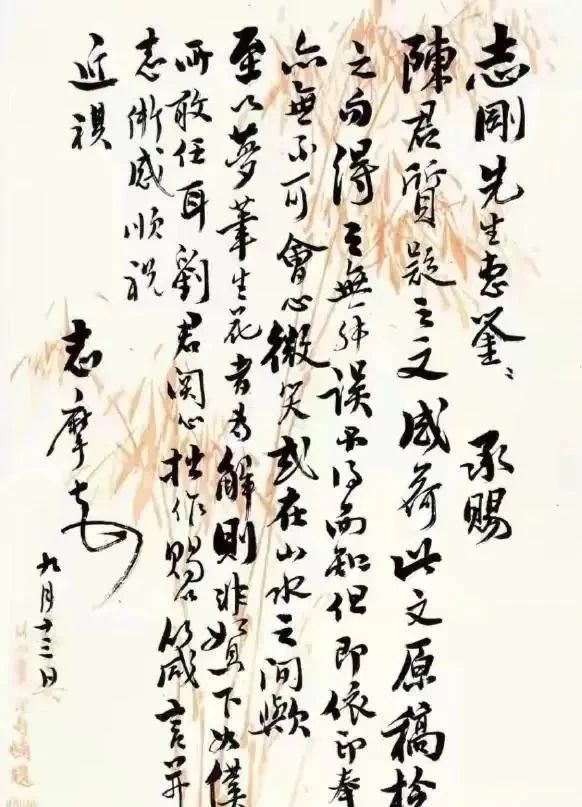 志剛先生惠鉴：承賜
陳君質疑之文感荷此文原稿
之句得之無 誤 而知但即依印奉
亦無不可會心微笑或在山水之間歟
至以夢筆生花者為解則非 下如僕
所敢任耳劉君関心拙作賜以箴言并
志衔感順祝
近祺
志摩
九月十三日